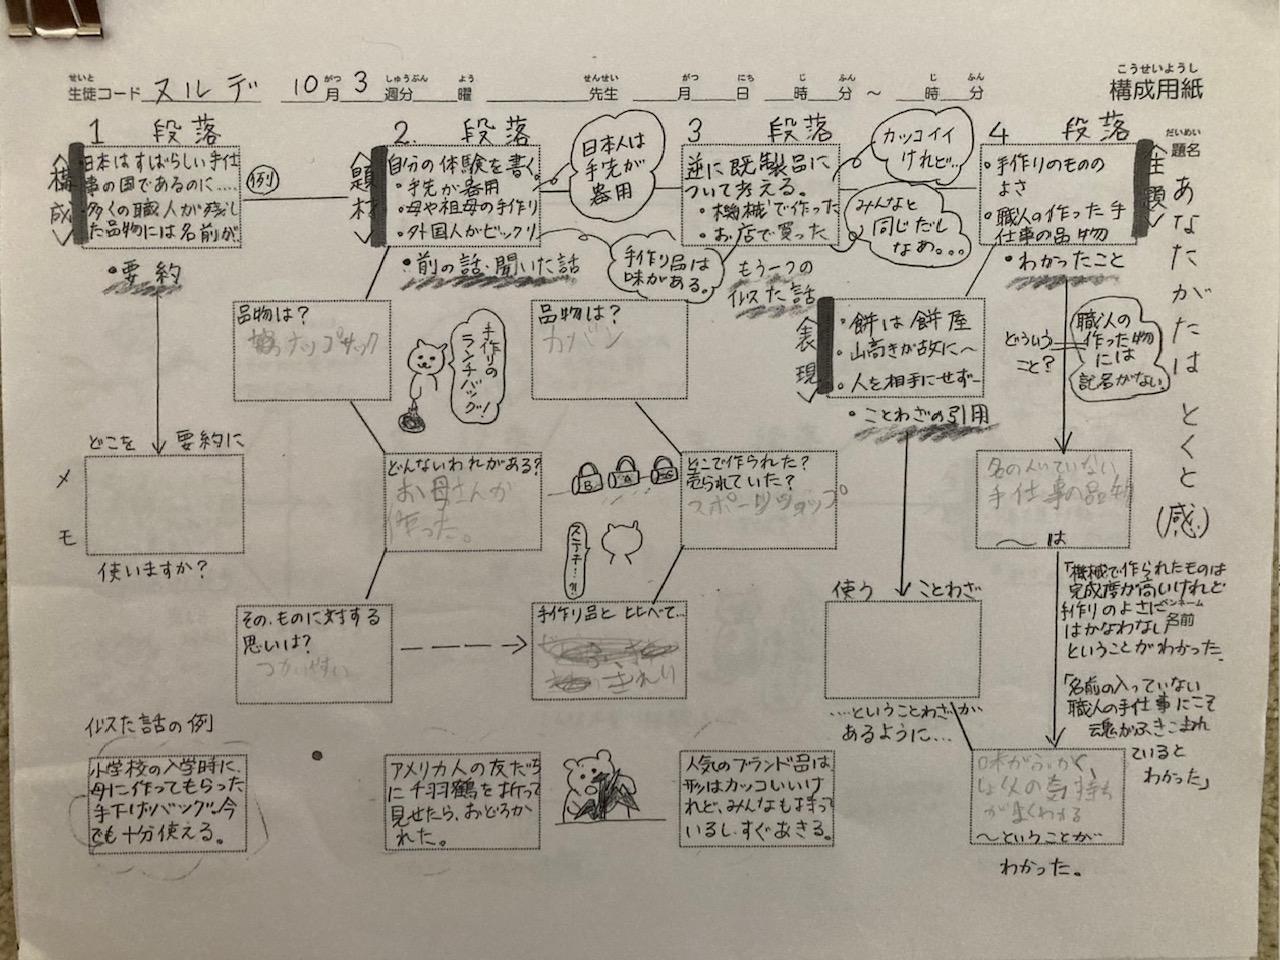 せいと がつ しゅうぶん よう せんせい がつ にち じ ふん じ ふん こうせいようし
生徒コード ヌルデ 10月3週分 曜 先生 月 日 時 分 ～ 時 分 構成用紙
だいめい
題名
あなたがたは とくと(感)
1 段落
構成
日本はすばらしい手仕
事の国であるのに……
多くの職人が残し
た品物には名前が
例
・要約
どこを 要約に
使いますか?
メモ
2. 段落
題材
自分の体験を書く。
・手先が器用
・母や祖母の手作り
・外国人がビックリ
日本人は
手先が
器用
手作り品は
味がある。
・前の話・聞いた話
品物は?
ナップサック
手作りの
ランチバッグ!
どんないわれがある?
お母さんが
作った。
その、ものに対する
思いは?
つかいやすい
3 段落
逆に既製品に
ついて考える。
・機械で作った
・お店で買った
カッコイイ
けれど…
みんなと
同じだし
なあ。。。
もう一つの
似た話
品物は?
カバン
どこで作られた?
売られていた?
スポーツショップ
B A
ステキ…?!
手作り品と比べて…
きれい
表現
・餅は餅屋
・山高きが故に〜
・人を相手にせず―
・ことわざの引用
使う ことわざ
……ということわざが
あるように…
4 段落
主題
・手作りのものの
よさ
・職人の作った手
仕事の品物
・わかったこと
どういう
こと?
職人の
作った物
には
記名がない。
名の入いていない
手仕事の品物
〜は
「機械で作られたものは
完成度が高いけれど
手作りのよさに
はかなわない
ということがわかった。
ペンネーム
名前
「名前の入っていない
職人の手仕事にこそ
魂がふきこまれ
ていると
わかった」
味がぶかく、
の気持ち
がよくわかる
〜ということが
わかった。
似た話の例
小学校の入学時に、
母に作ってもらった
手下げバッグ…今
でも十分使える。
アメリカ人の友だち
に千羽鶴を折って
見せたら、おどろか
れた。
人気のブランド品は、
形はカッコいいけ
れど、みんなも持って
いるし、すぐあきる。